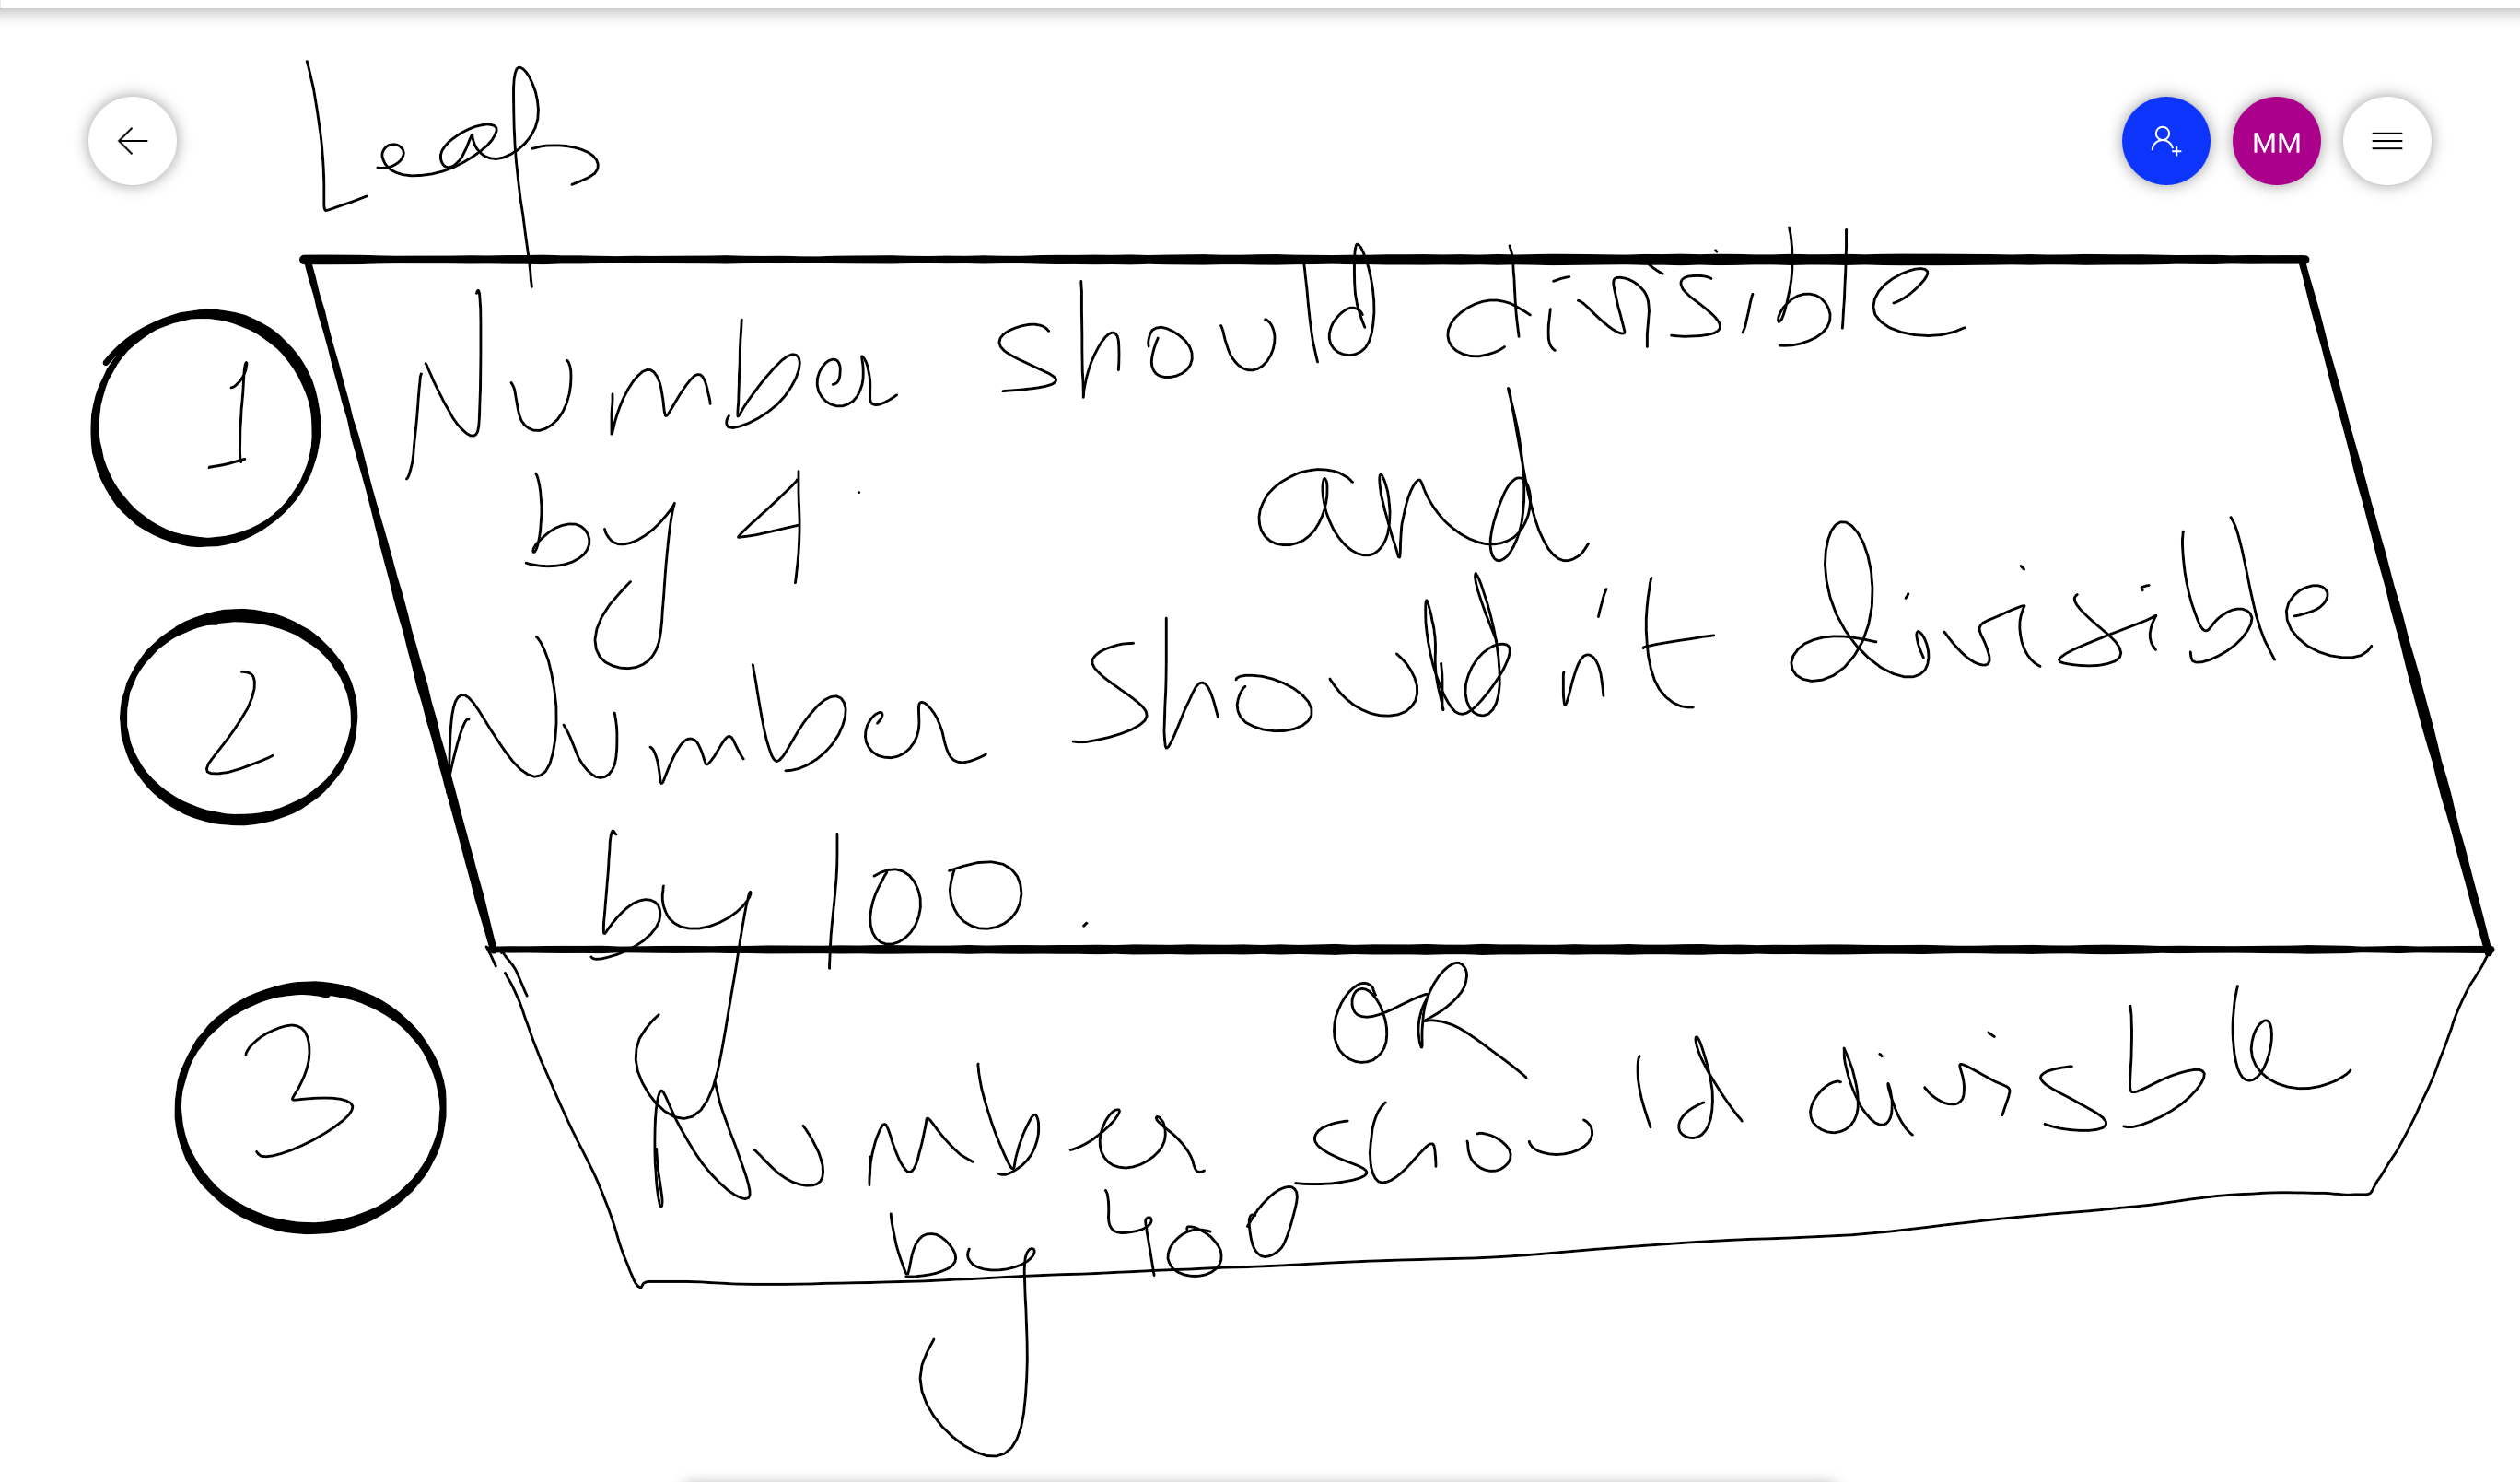 Leap
MM
1
Number should divisible
by 4 and
2
Number should n't divisible
by 100.
OR
3
Number should divisble
by 400